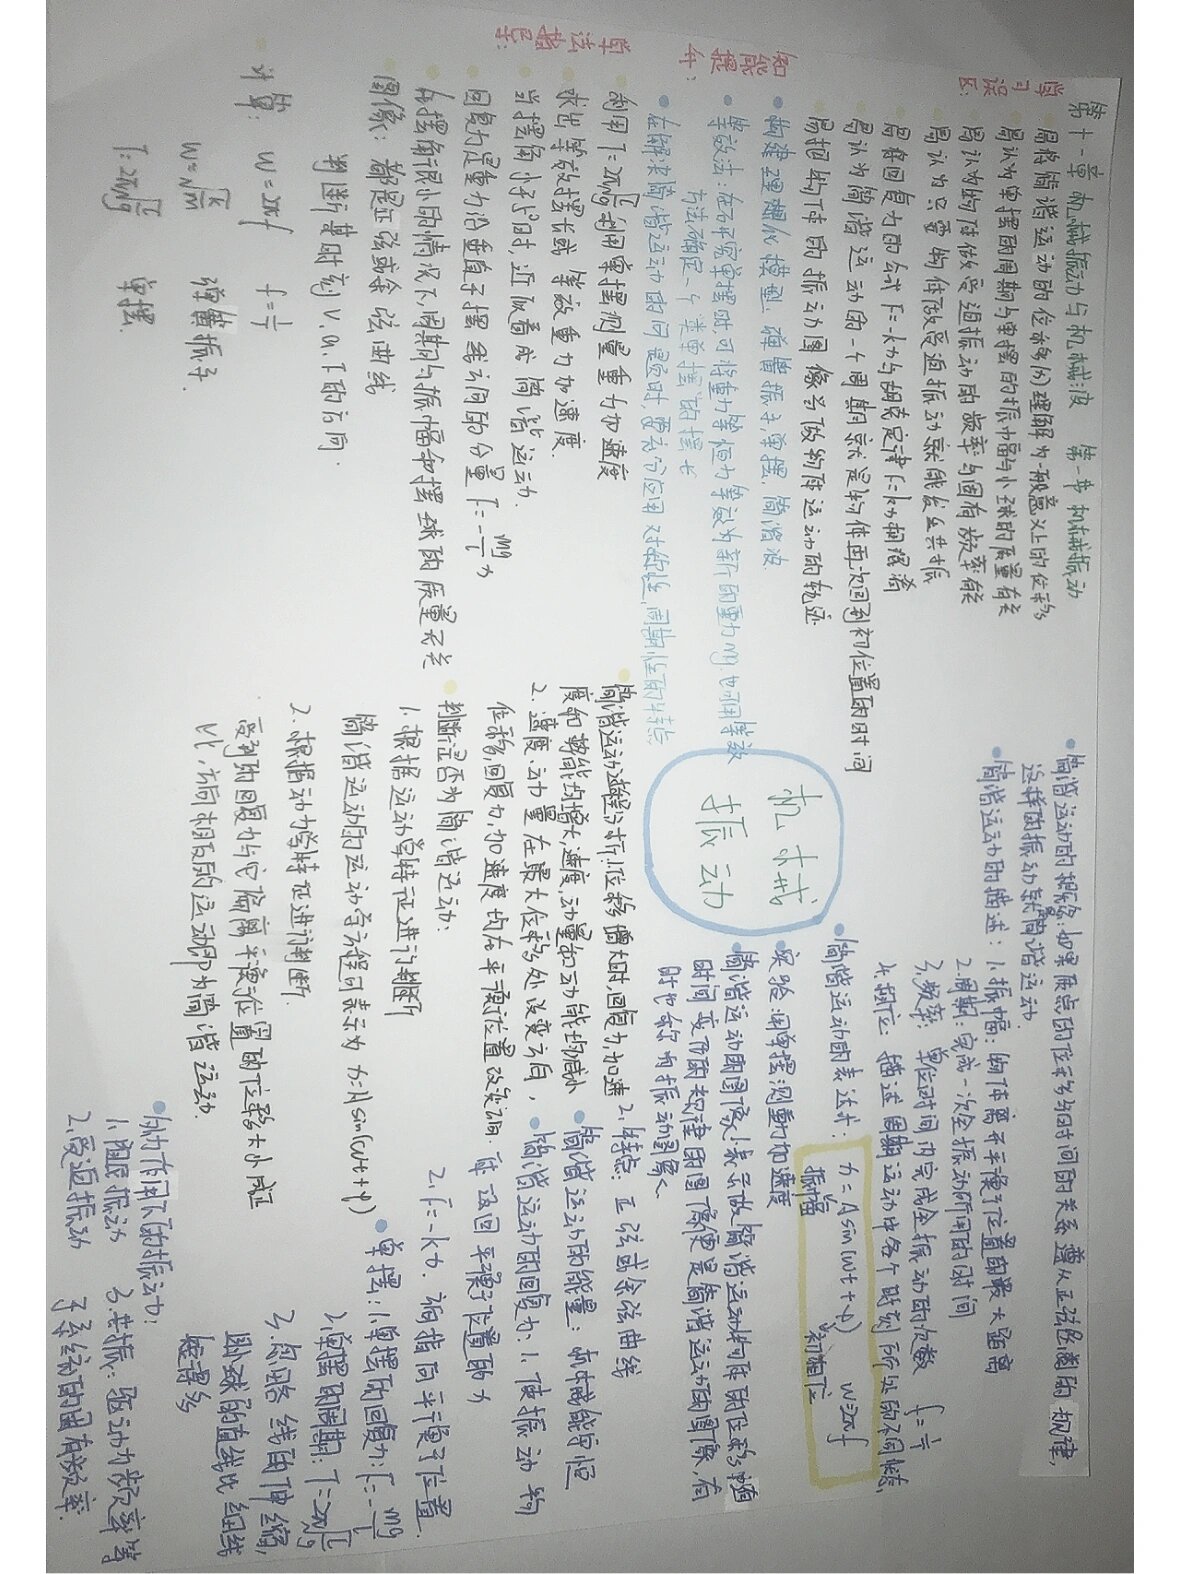 第十一章 机械振动与机械波 第一节 机械振动
学习误区:
易将简谐运动的位移(x)理解为一般意义上的位移
易认为单摆的周期与单摆的振幅与小球的质量有关
易认为物体做受迫振动的频率与固有频率有关
易认为只要物体做受迫振动就能发生共振
易将回复力的公式F=-kx与胡克定律F=kx相混淆
易认为简谐运动的一个周期就是物体再次回到初位置的时间
易把物体的振动图像当做物体运动的轨迹
知能提升:
构建理想化模型:弹簧振子,单摆,简谐波
等效法:在研究单摆时,可将重力等恒力等效为新的重力mg'也可用等效
方法确定一个类单摆的摆长
在解决简谐运动的问题时,要充分应用对称性,周期性的特点
算法指导:
利用T=2π√L/g利用单摆测重力加速度
求出等效摆长或等效重力加速度
当摆角小于5°时,近似看成简谐运动.
回复力是重力沿垂直于摆线方向的分量F=-mg/l x
在摆角很小的情况下,周期与振幅和摆球的质量无关
图像:都是正弦或余弦曲线
判断某时刻v,a,F的方向.
计算: w=2πf f=1/T
w=√k/m 弹簧振子.
T=2π√L/g 单摆.
机械
振动
简谐运动的概念:如果质点的位移与时间的关系遵从正弦函数的规律,
这样的振动就简谐运动
简谐运动的描述:1.振幅:物体离开平衡位置的最大距离
2.周期:完成一次全振动所用的时间
3.频率:单位时间内完成全振动的次数 f=1/T
4.相位:描述周期运动中各个时刻所处的不同状态
简谐运动的表达式: x=Asin(wt+φ) w=2πf
振幅 初相位
实验:用单摆测重力加速度
简谐运动的图像:1.表示做简谐运动物体的位移随
时间变化的规律的图像便是简谐运动的图像,有
时也称为振动图象.
2.特点:正弦或余弦曲线
简谐运动的能量:机械能守恒
简谐运动的回复力:1.使振动物
体返回平衡位置的力
2.F=-kx.说指向平衡位置.
单摆:1.单摆的回复力:F=-mg/l
2.单摆的周期:T=2π√L/g
3.忽略线的伸缩,
且球的直径比细线
短得多
简谐运动过程分析:1.位移增大时,回复力,加速
度和势能均增大,速度,动量和动能均减小
2.速度.动量在最大位移处改变方向,
位移,回复力,加速度均在平衡位置改变方向.
判断是否为简谐运动:
1.根据运动学特征进行判断
简谐运动的运动学方程可表示为x=Asin(wt+φ)
2.根据动力学特征进行判断.
受到的回复力与它偏离平衡位置的位移大小成正
比,方向相反的运动即为简谐运动.
外力作用下的振动:
1.阻尼振动
2.受迫振动
3.共振:驱动力频率等
于系统的固有频率.